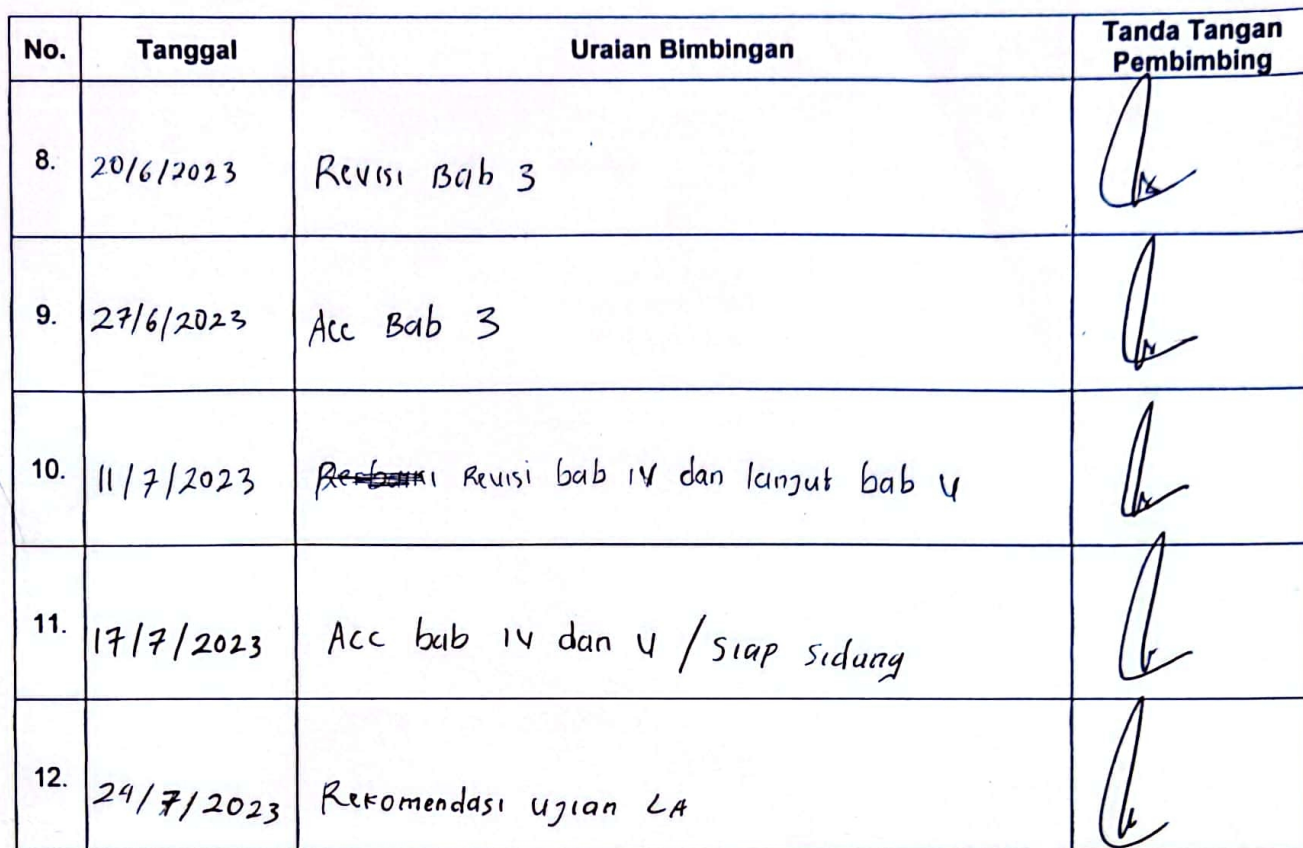 No. Tanggal Uraian Bimbingan Tanda Tangan
Pembimbing
8. 20/6/2023 Revisi Bab 3
9. 27/6/2023 Acc Bab 3
10. 11/7/2023 Revisi bab IV dan lanjut bab V
11. 17/7/2023 Acc bab IV dan V / siap sidang
12. 24/7/2023 Rekomendasi ujian LA